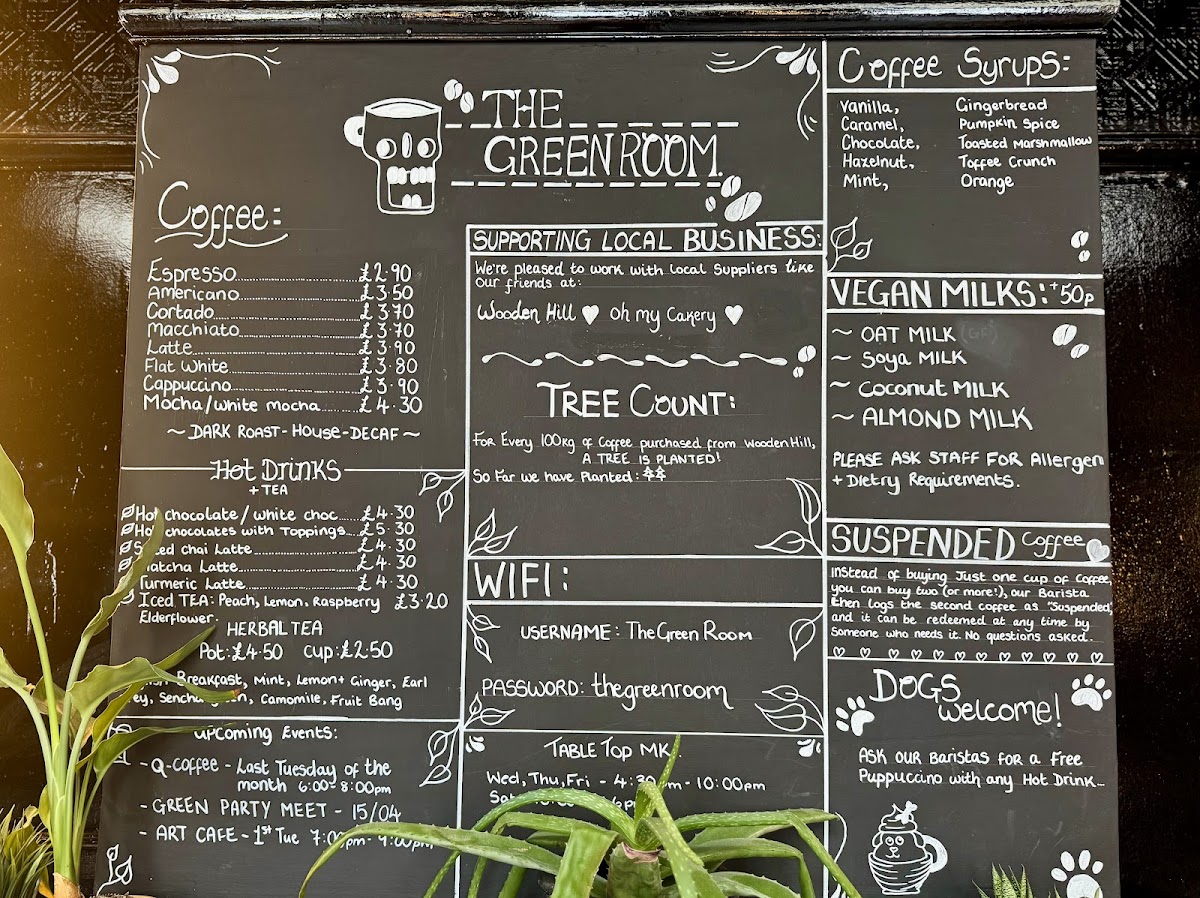 THE
GREEN ROOM.
Coffee:
Espresso........£2.90
Americano........£3.50
Cortado........£3.70
Macchiato........£3.70
Latte........£3.90
Flat White........£3.80
Cappuccino........£3.90
Mocha/white mocha........£4.30
~ DARK ROAST - HOUSE - DECAF ~
Hot DRINKS
+ TEA
Hot chocolate / white choc.....£4.30
Hot chocolates with Toppings....£5.30
chai Latte........£4.30
Matcha Latte........£4.30
Turmeric Latte........£4.30
Iced TEA: Peach, Lemon, Raspberry £3.20
Elderflower.
HERBAL TEA
Pot: £4.50 Cup: £2.50
Breakfast, Mint, Lemon + Ginger, Earl
Camomile, Fruit Bang
Upcoming Events:
- Q-coffee - Last Tuesday of the
month 6:00-8:00pm
- GREEN PARTY MEET - 15/04
- ART CAFE - 1st Tue
SUPPORTING LOCAL BUSINESS:
We're pleased to work with local suppliers like
our friends at:
Wooden Hill ♥ oh my Cakery ♥
TREE COUNT:
For Every 100kg of Coffee purchased from Wooden Hill,
A TREE IS PLANTED!
So Far we have Planted:
WIFI:
USERNAME: The Green Room
PASSWORD: thegreenroom
TABLE TOP MK
Wed, Thu, Fri - - 10:00pm
Coffee Syrups:
Vanilla, Gingerbread
Caramel, Pumpkin Spice
Chocolate, Toasted Marshmallow
Hazelnut, Toffee Crunch
Mint, Orange
VEGAN MILKS: +50p
~ OAT MILK (GF)
~ Soya MILK
~ Coconut MILK
~ ALMOND MILK
PLEASE ASK STAFF FOR Allergen
+ Dietry Requirements.
SUSPENDED Coffee
Instead of buying Just one cup of coffee,
you can buy two (or more!), our Barista
then logs the second coffee as "Suspended,"
and it can be redeemed at any time by
someone who needs it. No questions asked.
DOGS
welcome!
ASK OUR Baristas for a Free
Puppuccino with any Hot Drink...